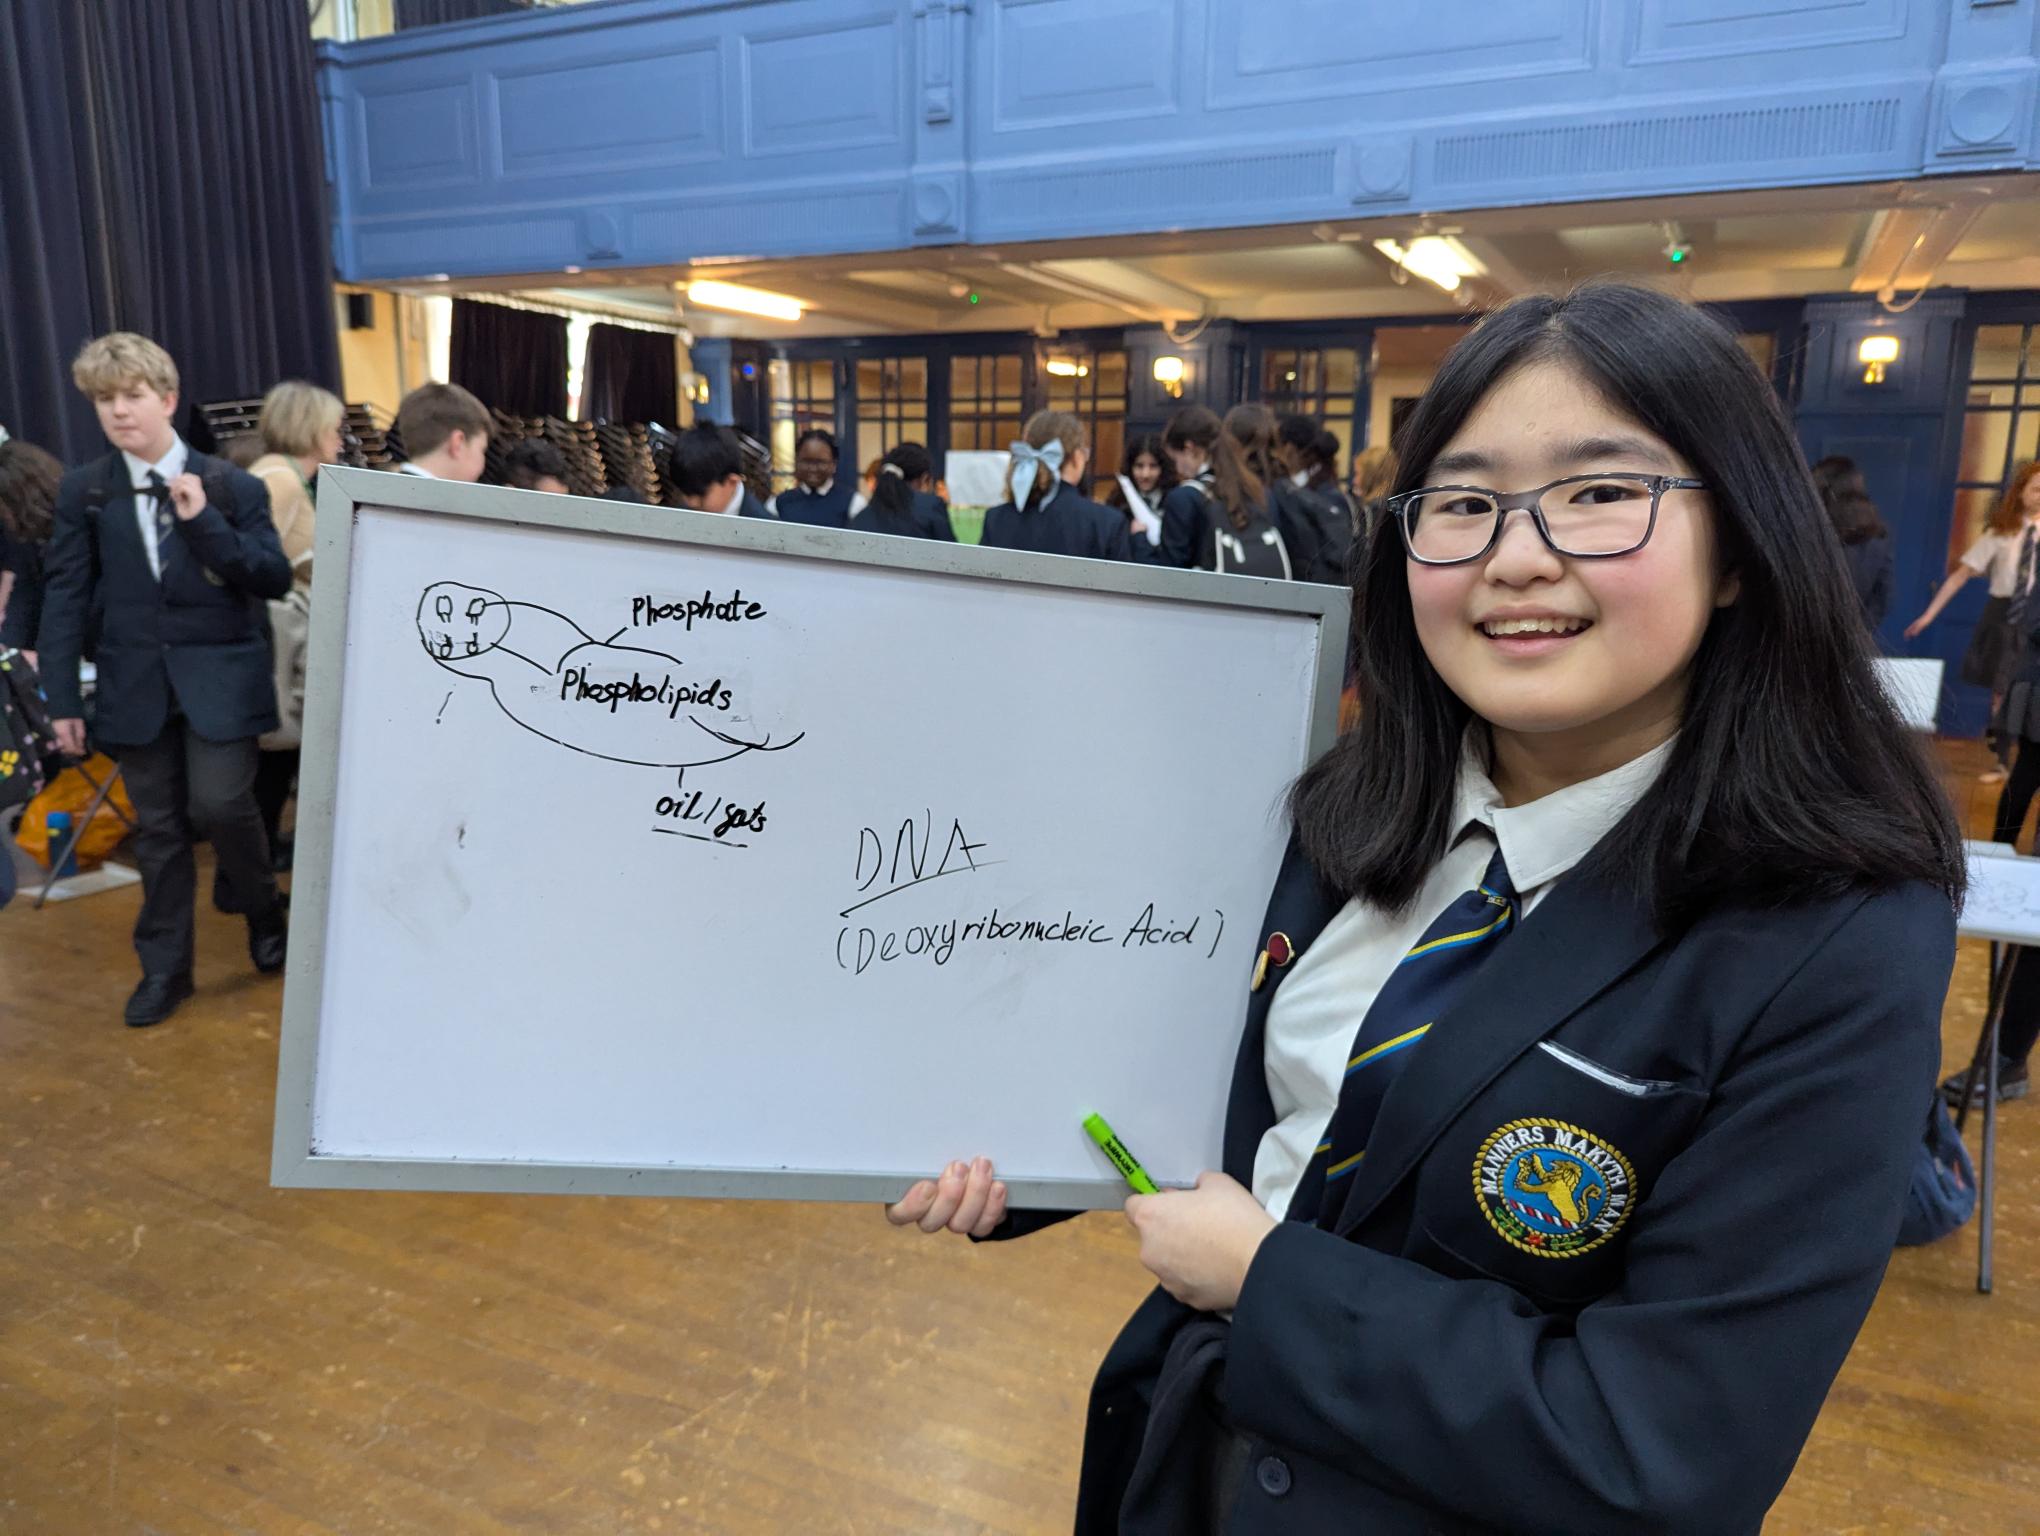 Phosphate
Phospholipids
oil/fats
DNA
(Deoxyribonucleic Acid)
MANNERS MAKYTH MAN